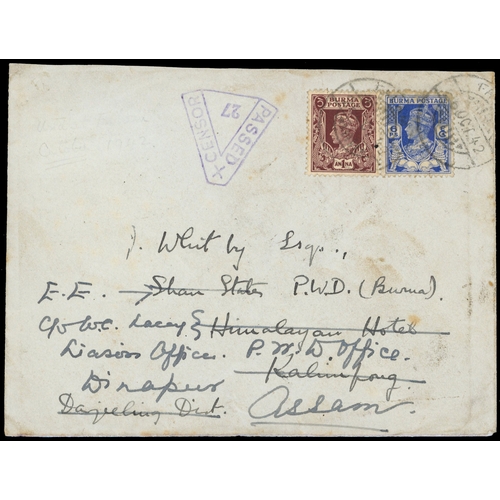 PASSED
CENSOR
27
BURMA POSTAGE
ANNA
BURMA POSTAGE
OCT 42
J. Whitby Esqr.,
E.E. Shan States P.W.D. (Burma).
c/o Lt. Col. Lacey Himalayan Hotel
Liason Officer. P.W.D. Office.
Dinapur Kalimpong
Darjeeling Dist. Assam.